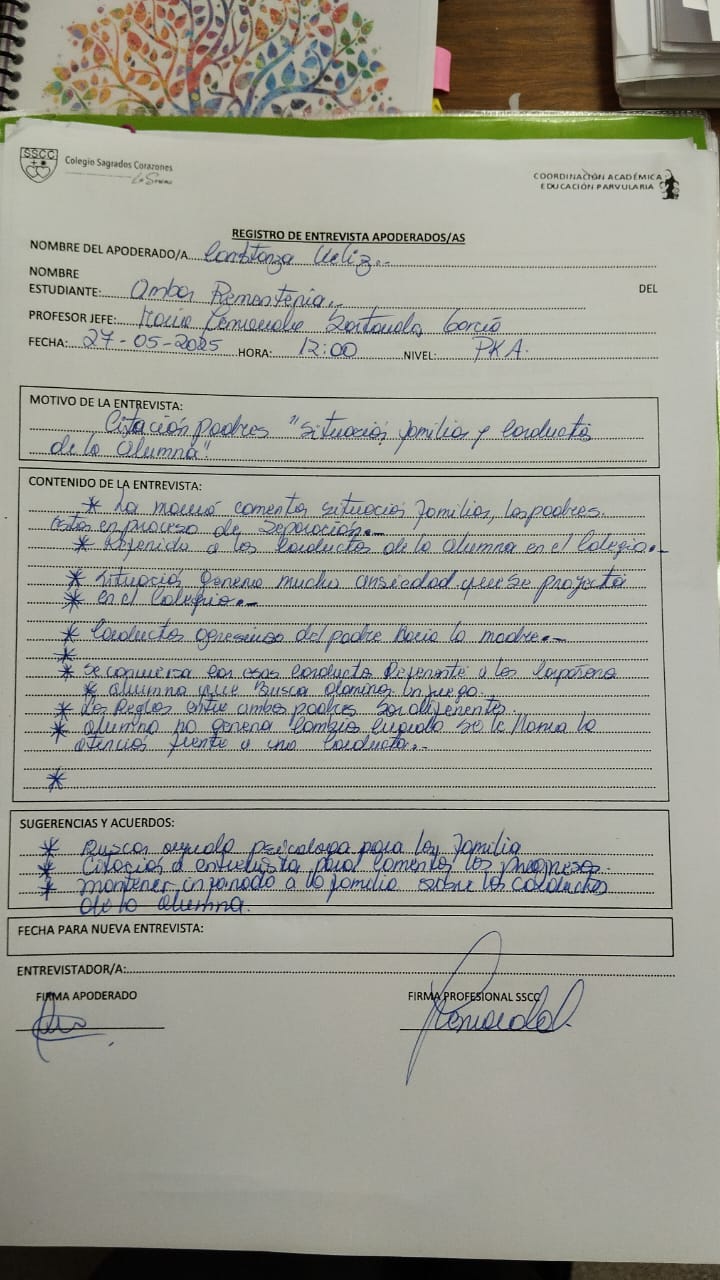 SSCC
Colegio Sagrados Corazones
La Serena
COORDINACIÓN ACADÉMICA
EDUCACIÓN PARVULARIA
REGISTRO DE ENTREVISTA APODERADOS/AS
NOMBRE DEL APODERADO/A Constanza Veliz.
NOMBRE DEL
ESTUDIANTE: Ambar Rementeria.
PROFESOR JEFE: María Fernanda Santander García
FECHA: 27-05-2025 HORA: 12:00 NIVEL: PKA.
MOTIVO DE LA ENTREVISTA:
Citación padres "Situación familiar y conducta
de la alumna"
CONTENIDO DE LA ENTREVISTA:
* La mamá comenta situación familiar, los padres
están en proceso de separación.
* Referido a las conductas de la alumna en el Colegio.
* Situación genera mucha ansiedad que se proyecta
* en el Colegio.
* Conductas agresivas del padre hacia la madre.
*
* Se conversa con esas conducta referente a los
* alumna que busca dominar un juego.
* Las Reglas entre ambos padres son diferentes.
* alumna no genera cambio cuando se le llama la
atención frente a una conducta.
*
SUGERENCIAS Y ACUERDOS:
* Buscar ayuda psicologa para la familia
* Citación a entrevista para comentar los progresos.
* mantener informado a la familia sobre las conductas
de la alumna.
FECHA PARA NUEVA ENTREVISTA:
ENTREVISTADOR/A:
FIRMA APODERADO FIRMA PROFESIONAL SSCC